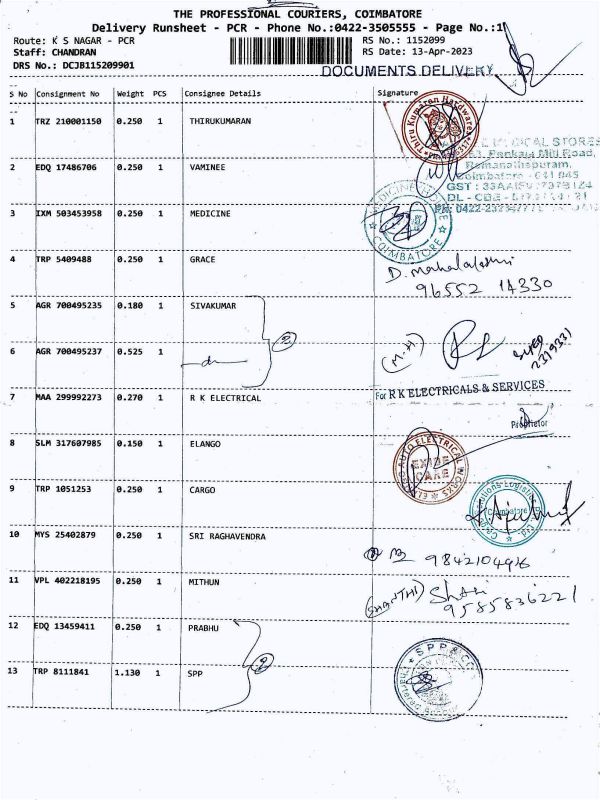 THE PROFESSIONAL COURIERS, COIMBATORE
Delivery Runsheet - PCR - Phone No.:0422-3505555 - Page No.:1
Route: K S NAGAR - PCR RS No.: 1152099
Staff: CHANDRAN RS Date: 13-Apr-2023
DRS No.: DCJB115209901
DOCUMENTS DELIVERY
S No Consignment No Weight PCS Consignee Details Signature
1 TRZ 210001150 0.250 1 THIRUKUMARAN
Thiru Kumaran Hardwares
MEDICAL STORES
Pankaja Mill Road,
Ramanathapuram,
Coimbatore - 641 045
2 EDQ 17486706 0.250 1 VAMINEE
GST : 33AA
DL - CBE -
PH: 0422-
3 IXM 503453958 0.250 1 MEDICINE
MEDICINE HOUSE
COIMBATORE
4 TRP 5409488 0.250 1 GRACE
D. mahalakshmi
96552 14330
5 AGR 700495235 0.180 1 SIVAKUMAR
2
(M.H)
6 AGR 700495237 0.525 1
7 MAA 299992273 0.270 1 R K ELECTRICAL
For R K ELECTRICALS & SERVICES
Proprietor
8 SLM 317607985 0.150 1 ELANGO
ELANGO AUTO ELECTRICAL WORKS
EXIDE
CARE
9 TRP 1051253 0.250 1 CARGO
Solutions Logistics
Coimbatore
10 MYS 25402879 0.250 1 SRI RAGHAVENDRA
9842104926
11 VPL 402218195 0.250 1 MITHUN
(SHANTHI) Shanthi
9585836221
12 EDQ 13459411 0.250 1 PRABHU
2
13 TRP 8111841 1.130 1 SPP
SPP & CO